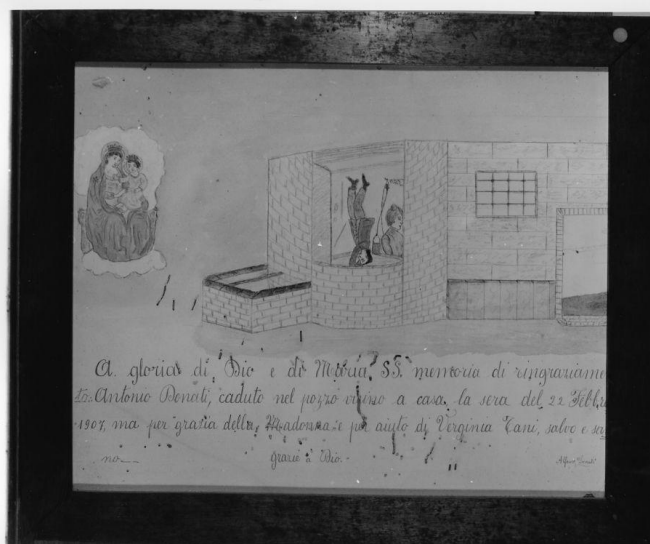 A gloria di Dio e di Maria SS. memoria di ringraziame
to. Antonio Donati, caduto nel pozzo vicino a casa la sera del 22 Febbr
1907, ma per grazia della Madonna e per aiuto di Virginia Tani, salvo e sa
no
Grazie a Dio.